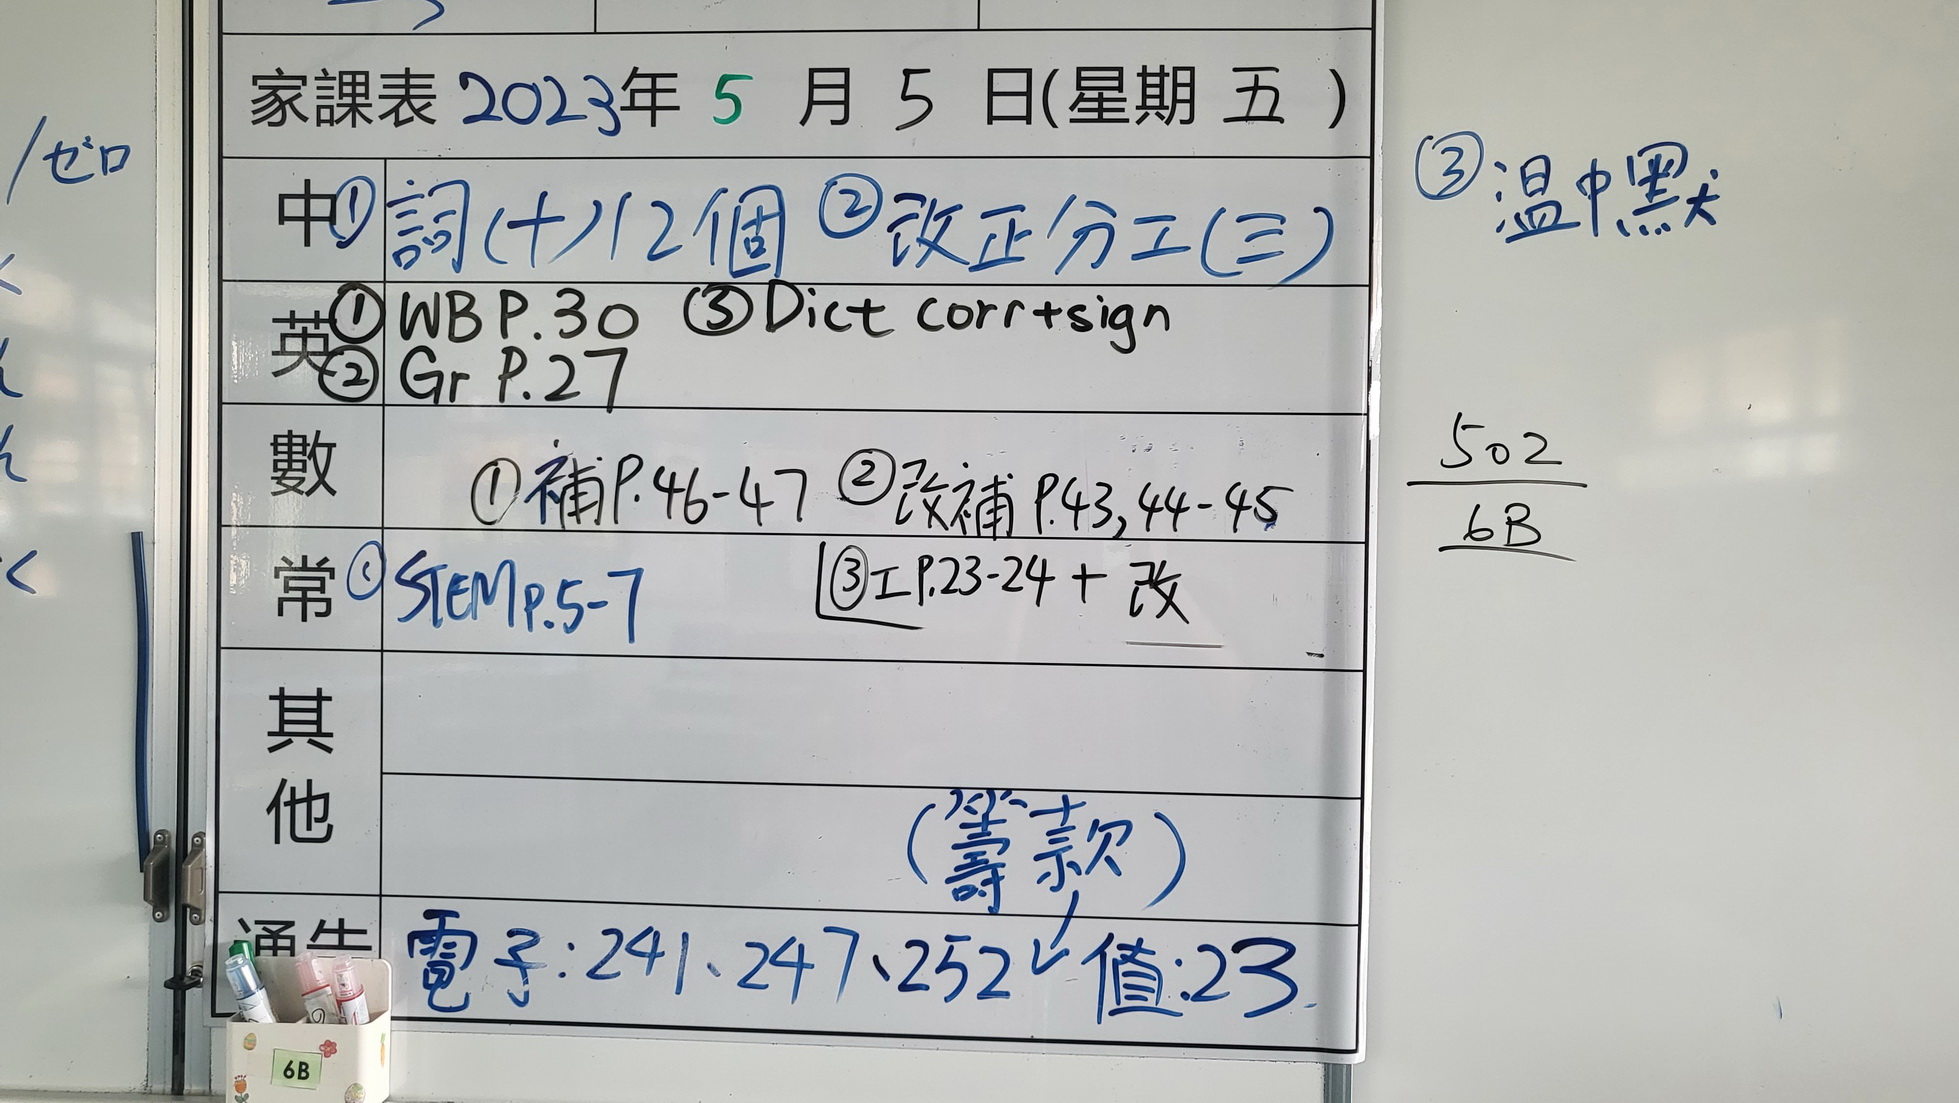 /ゼロ
家課表 2023年 5 月 5 日(星期 五 )
中 ① 詞(十)12個 ② 改正分工(三)
③ 温中默
英 ① WB P.30 ③ Dict corr+sign
② Gr P.27
數 ① 補P.46-47 ② 改補 P.43, 44-45
③ 工P.23-24 + 改
常 ① STEM P.5-7
其他
(籌款)
通告 電子:241、247、252 值:23
502
6B
6B